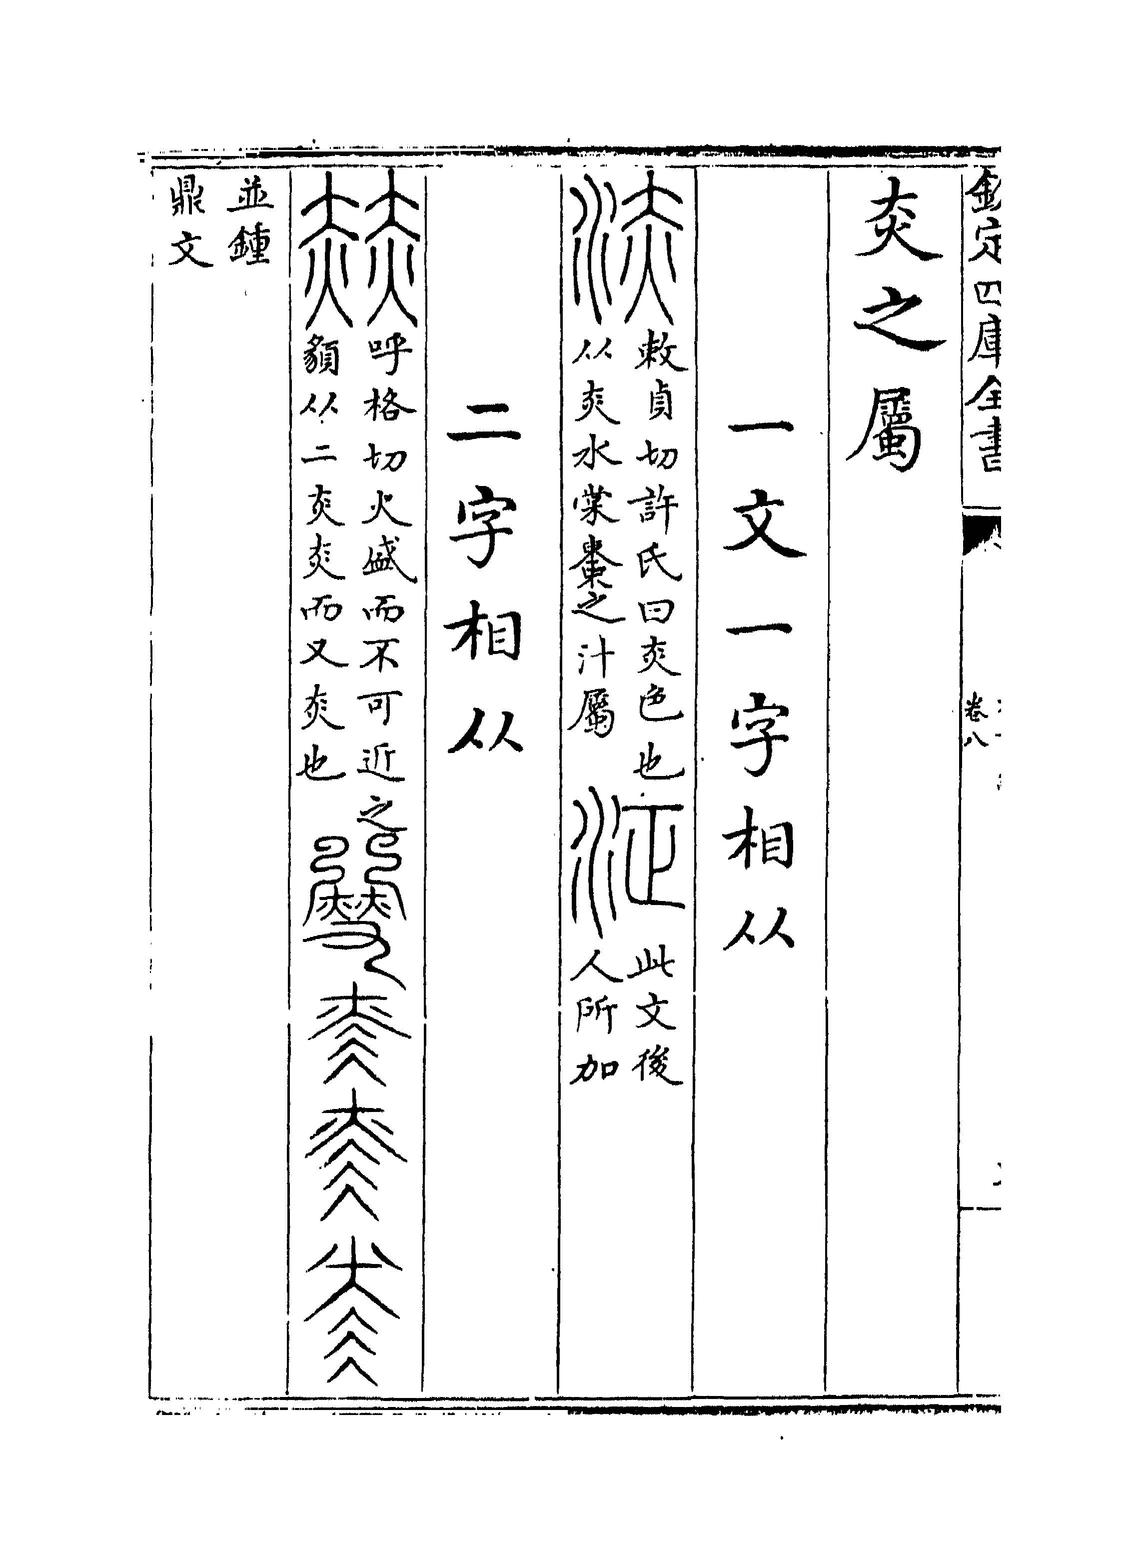 欽定四庫全書
卷八
𤆍之屬
一文一字相从
浾
敕貞切許氏曰𤆍色也
从𤆍水棠棗之汁屬
泟
此文後
人所加
二字相从
赫
呼格切火盛而不可近之
貌从二𤆍𤆍而又𤆍也
並鍾
鼎文